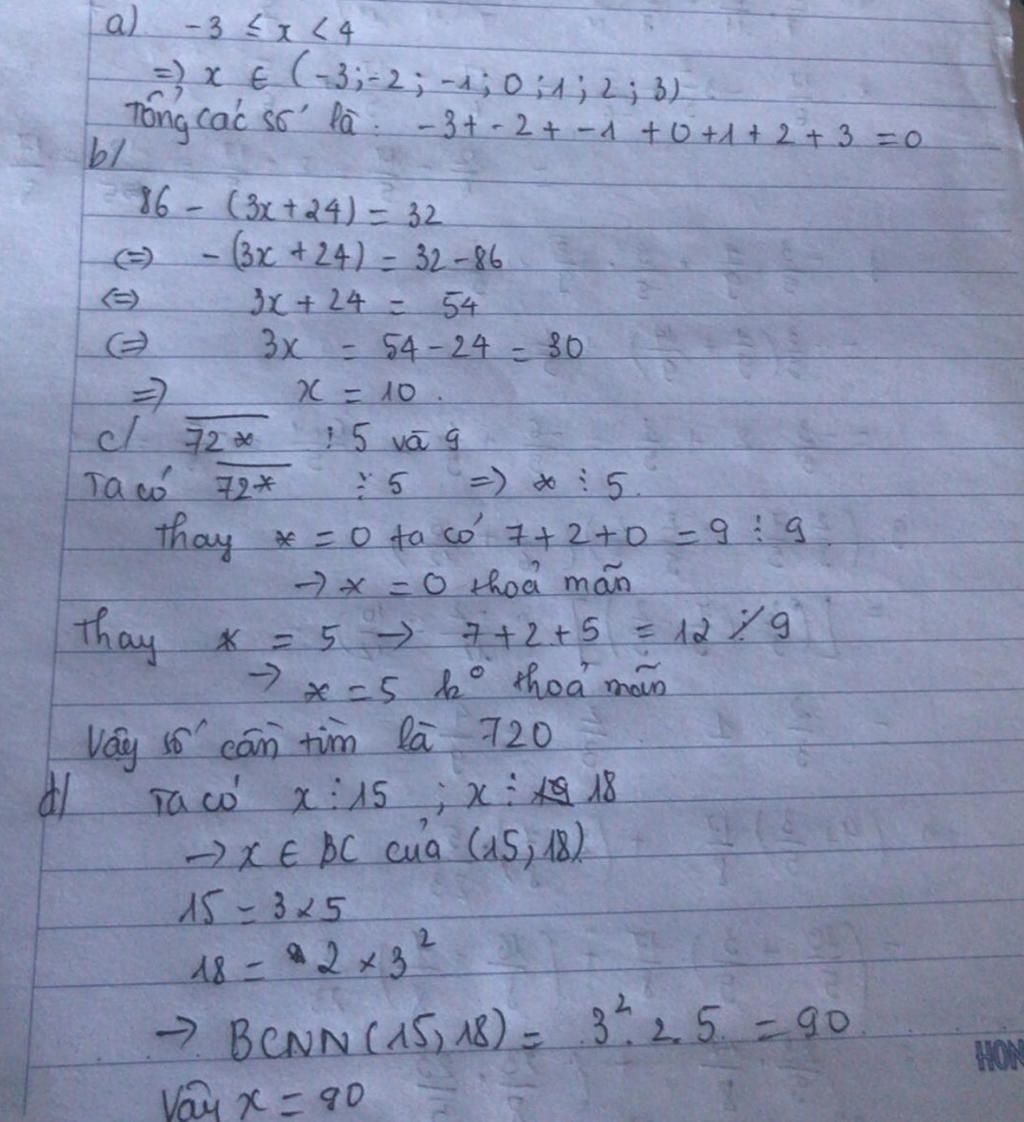 a) -3 ≤ x < 4
=> x ∈ (-3; -2; -1; 0; 1; 2; 3)
Tổng các số là: -3 + -2 + -1 + 0 + 1 + 2 + 3 = 0
b/
86 - (3x + 24) = 32
<=> - (3x + 24) = 32 - 86
<=> 3x + 24 = 54
<=> 3x = 54 - 24 = 30
=> x = 10.
c/ \overline{72*} ⋮ 5 và 9
Ta có \overline{72*} ⋮ 5 => * ⋮ 5.
Thay * = 0 ta có 7 + 2 + 0 = 9 ⋮ 9.
-> * = 0 thoả mãn
Thay * = 5 -> 7 + 2 + 5 = 12 ⋮̸ 9
-> * = 5 k° thoả mãn
Vậy số cần tìm là 720
d/ Ta có x ⋮ 15 ; x ⋮ 18
-> x ∈ BC của (15, 18)
15 = 3 x 5
18 = 2 x 3²
-> BCNN (15, 18) = 3² . 2 . 5 = 90
Vậy x = 90
HON